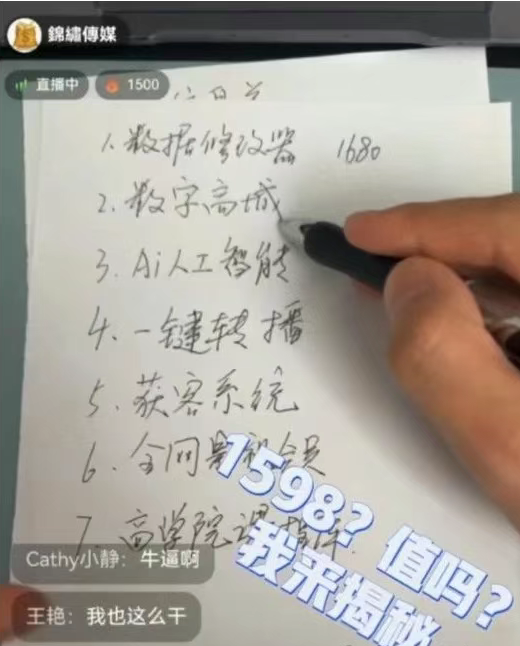 錦繡傳媒
直播中 1500
1.数据修改器 1680
2.数字商城
3.Ai人工智能
4.一键转播
5.获客系统
6.全网影视会员
7.商学院课
1598?值吗?
我来揭秘
Cathy小静：牛逼啊
王艳：我也这么干